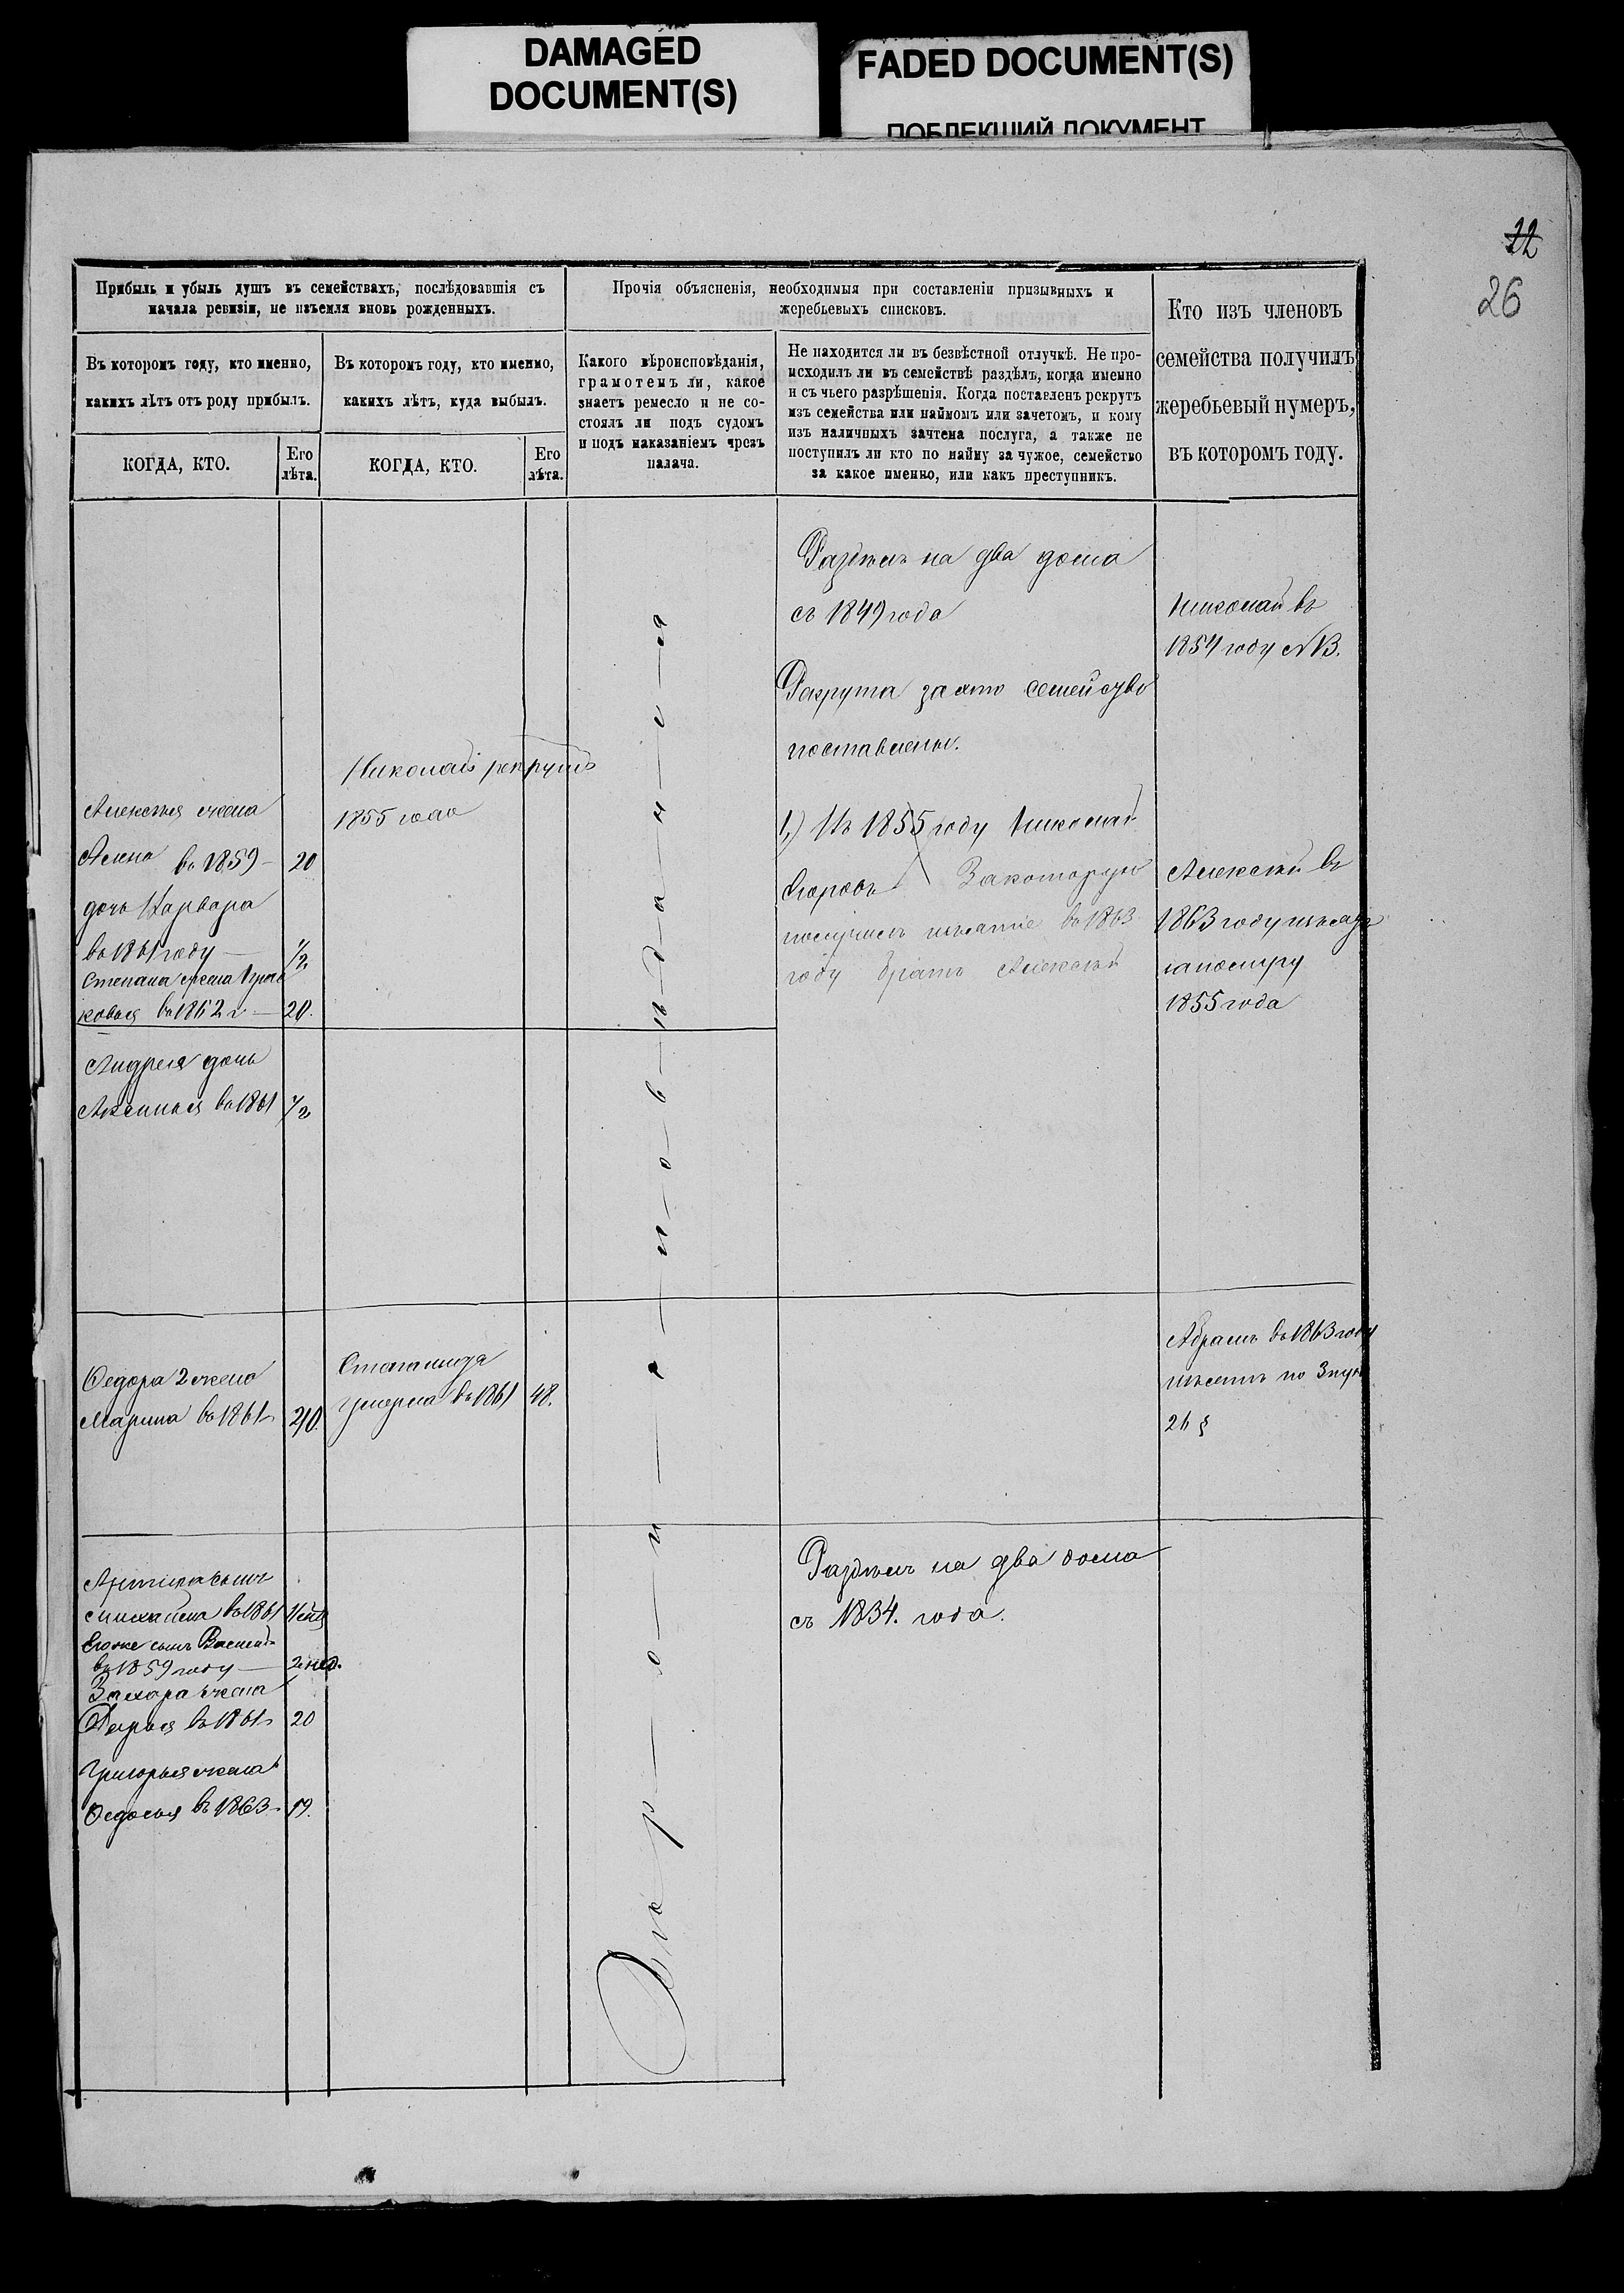 DAMAGED
DOCUMENT(S)
FADED DOCUMENT(S)
ПОБЛЕКШИЙ ДОКУМЕНТ
22
26
Прибыль и убыль душъ въ семействахъ, послѣдовавшія съ
начала ревизіи, не изъемля вновь рожденныхъ.
Въ которомъ году, кто именно,
какихъ лѣтъ отъ роду прибылъ.
КОГДА, КТО.
Его
лѣта.
Въ которомъ году, кто именно,
какихъ лѣтъ, куда выбылъ.
КОГДА, КТО.
Его
лѣта.
Прочія объясненія, необходимыя при составленіи призывныхъ и
жеребьевыхъ списковъ.
Какого вѣроисповѣданія,
грамотенъ ли, какое
знаетъ ремесло и не со-
стоялъ ли подъ судомъ
и подъ наказаніемъ чрезъ
палача.
Не находится ли въ безвѣстной отлучкѣ. Не про-
исходилъ ли въ семействѣ раздѣлъ, когда именно
и съ чьего разрѣшенія. Когда поставленъ рекрутъ
изъ семейства или наймомъ или зачетомъ, и кому
изъ наличныхъ зачтена послуга, а также не
поступилъ ли кто по найму за чужое, семейство
за какое именно, или какъ преступникъ.
Кто изъ членовъ
семейства получилъ
жеребьевый нумеръ,
въ которомъ году.
Раздѣлъ на два дома
съ 1849 года
Николай въ
1854 году №13.
Рекрута за это семейство
поставлены.
Николай рекрутъ
1855 года
Алексѣя жена
Алена въ 1859 - 20
дочь Варвара
въ 1861 году — 1/2
Степана жена
въ 1862 г — 20.
1,) Въ 1855 году Николай
Егоровъ За которую
получилъ изъятіе въ 1863
году братъ Алексѣй
Алексѣй въ
1863 году изъятъ
1855 года
Андрея дочь
Аксинья въ 1861 1/2
Федора 2 жена
Марина въ 1861 20.
Степанида
умерла въ 1861 48.
Абрамъ въ 1863 году
изъятъ по 3 пун
26 §
сынъ
Михайла въ 1861
сынъ Василій
въ 1859 году — 2 нед.
Захара жена
Дарья въ 1861 20
Григорья жена
Федосья въ 1863 - 19.
Раздѣлъ на два дома
съ 1834. года.